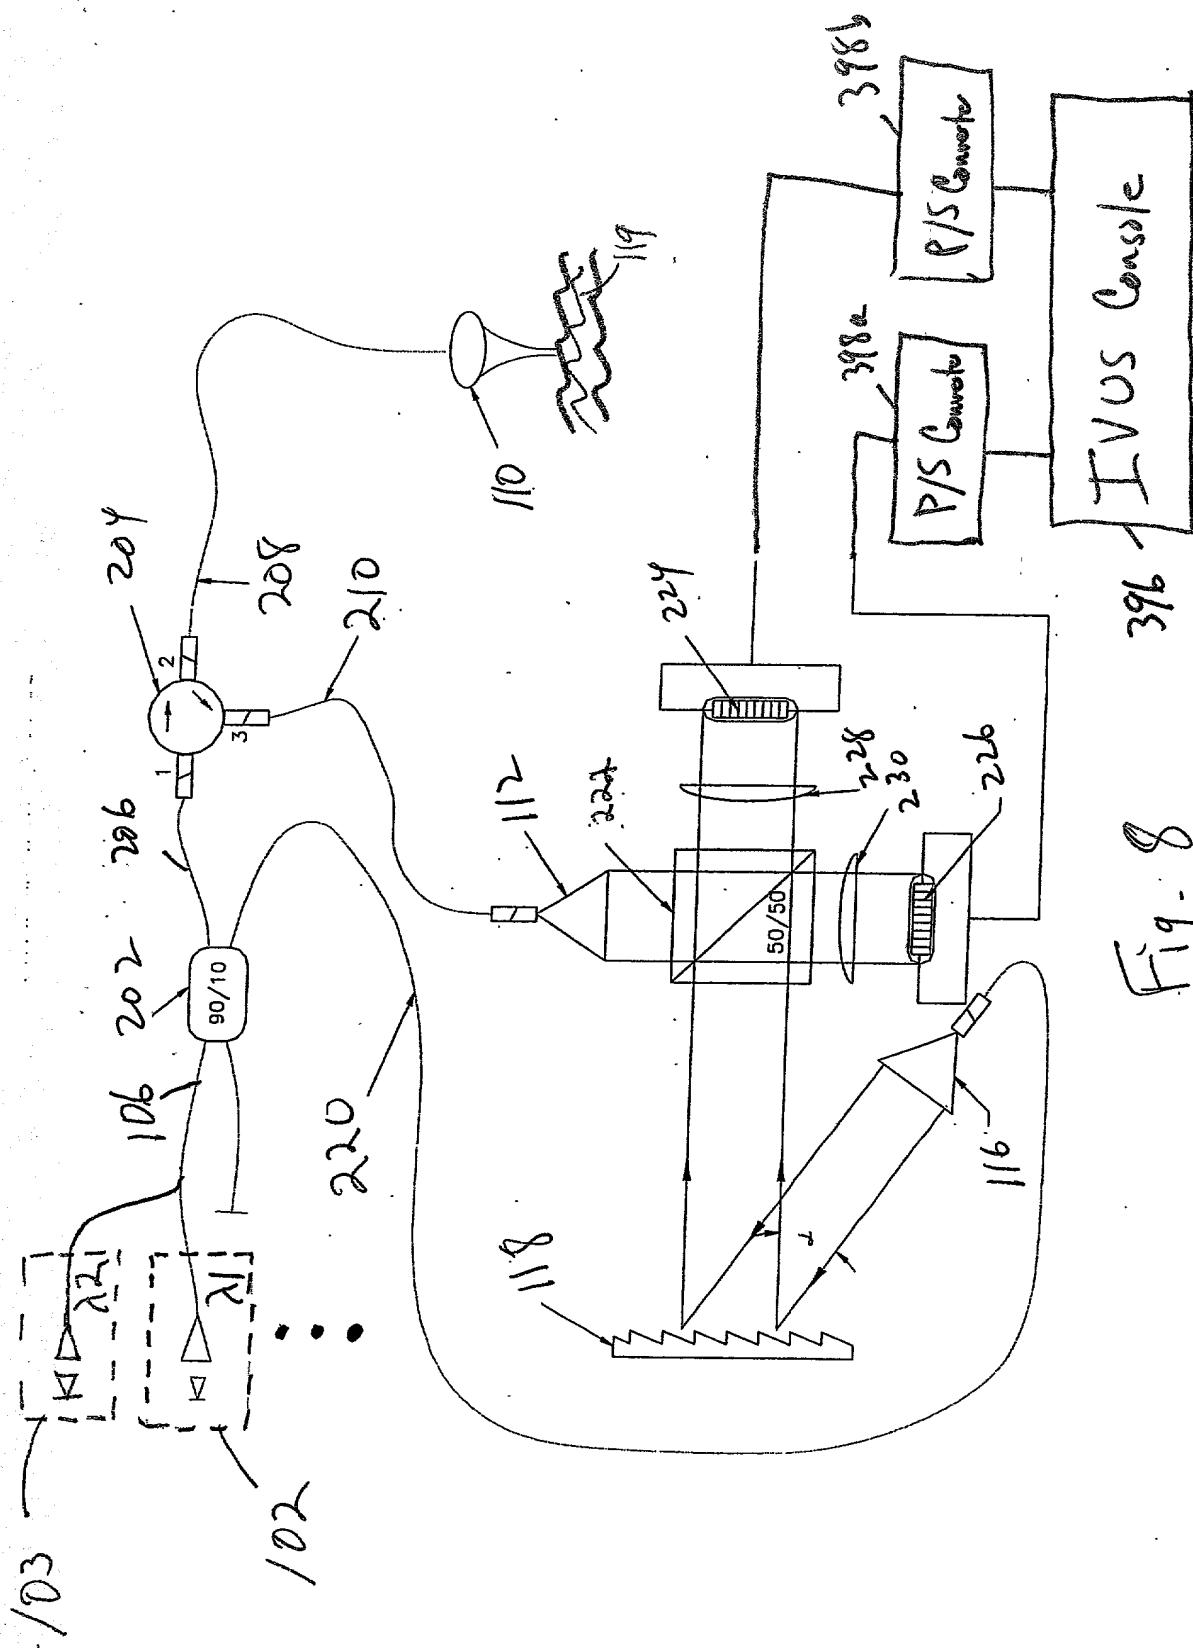 103
λ2
102
λ1
106
202
90/10
206
204
1
2
3
208
210
110
119
220
112
222
50/50
224
228
230
226
118
α
116
398b
P/S Converter
398a
P/S Converter
396
IVUS Console
Fig. 8